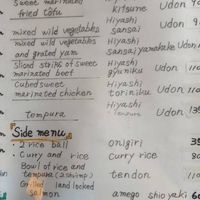 Sweet marinated Hiyashi
fried tofu kitsune Udon 9
mixed wild vegetables Hiyashi sansai Udon 9
mixed wild vegetables Hiyashi
and grated yam Sansai yamakake Udon
Sliced strips of sweet Hiyashi
marinated beef gyuniku Udon 110
Cubed sweet Hiyashi
marinated chicken toriniku Udon 110
Hiyashi
Tempura Tempura Udon 110
Side menu
· 2 rice ball onigiri 35
· Curry and rice Curry rice 80
Bowl of rice and
tempura (2 shrimp) tendon 110
Grilled land locked
salmon amego shioyaki 60